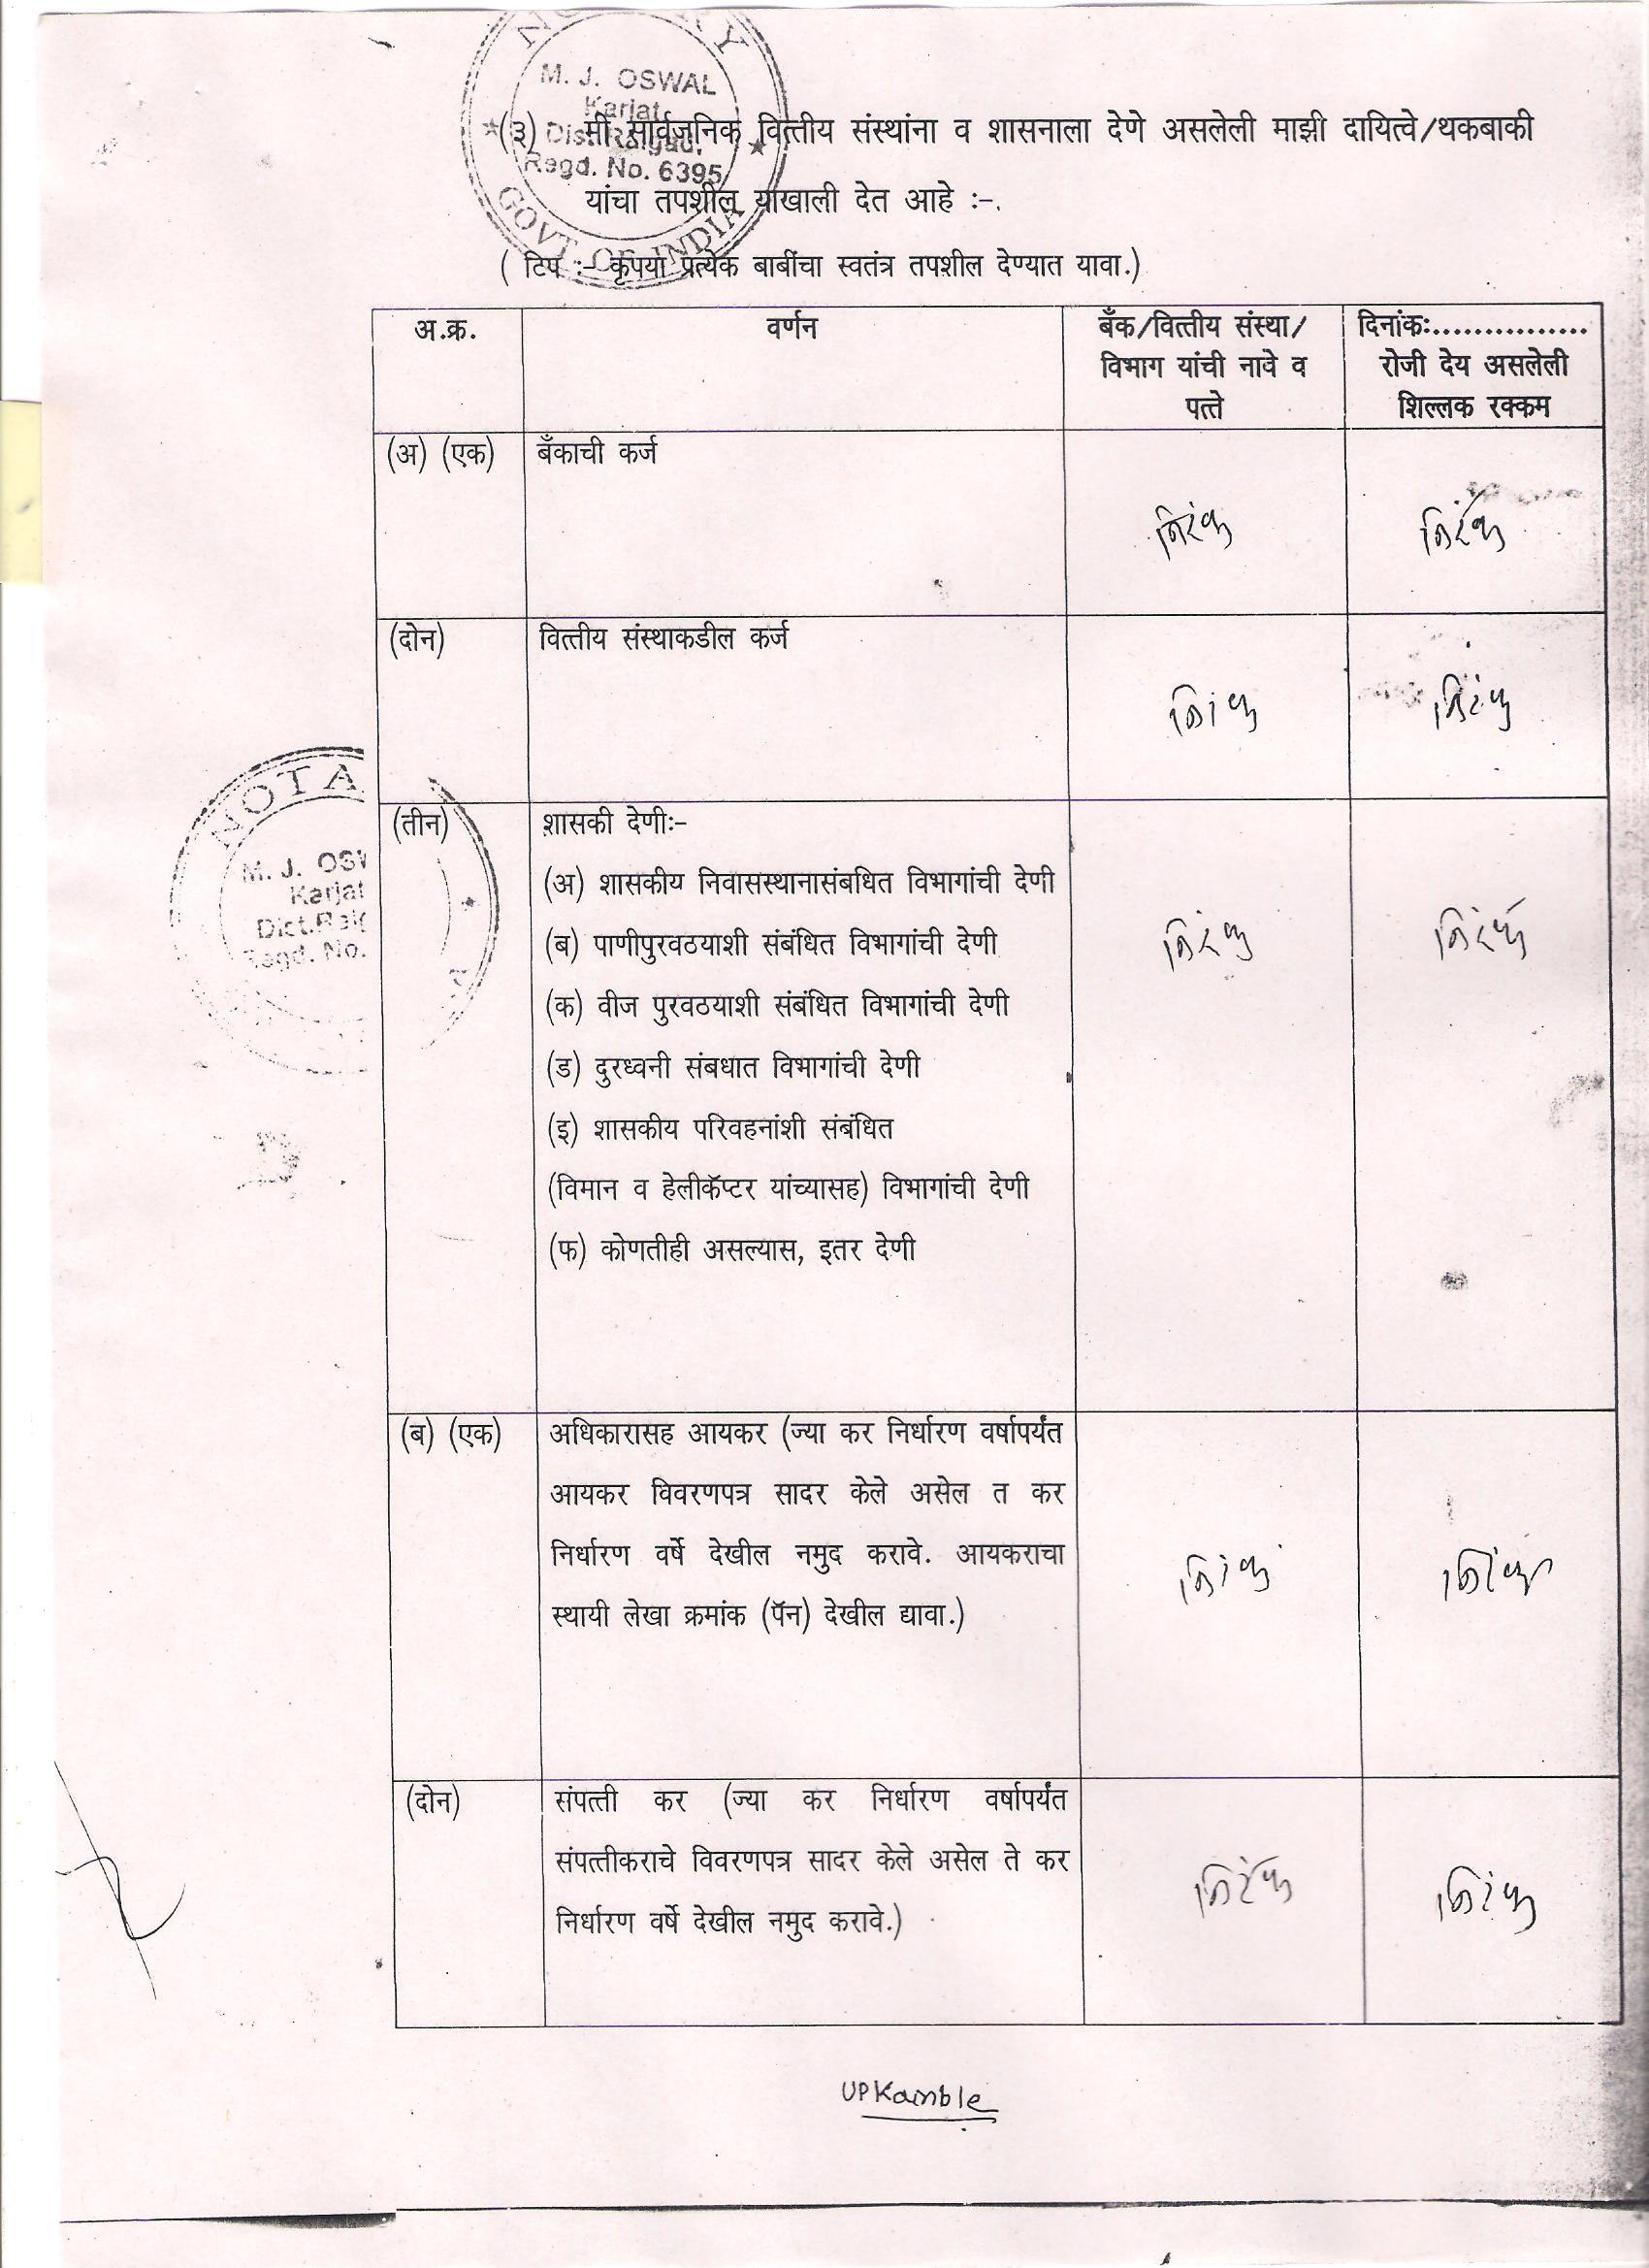 NOTARY
M. J. OSWAL
Karjat,
Dist. Raigad,
Regd. No. 6395
GOVT OF INDIA
(३) मी सार्वजनिक वित्तीय संस्थांना व शासनाला देणे असलेली माझी दायित्वे/थकबाकी
यांचा तपशील याखाली देत आहे :-.
( टिप :- कृपया प्रत्येक बाबींचा स्वतंत्र तपशील देण्यात यावा.)
अ.क्र. वर्णन बँक/वित्तीय संस्था/ दिनांकः...............
विभाग यांची नावे व रोजी देय असलेली
पत्ते शिल्लक रक्कम
(अ) (एक) बँकाची कर्ज
निरंक निरंक
(दोन) वित्तीय संस्थाकडील कर्ज
निरंक निरंक
NOTA
M. J. OSW
Karjat
Dict.Raig
Regd. No.
(तीन) शासकी देणीः-
(अ) शासकीय निवासस्थानासंबधित विभागांची देणी
(ब) पाणीपुरवठयाशी संबंधित विभागांची देणी निरंक निरंक
(क) वीज पुरवठयाशी संबंधित विभागांची देणी
(ड) दुरध्वनी संबधात विभागांची देणी
(इ) शासकीय परिवहनांशी संबंधित
(विमान व हेलीकॅप्टर यांच्यासह) विभागांची देणी
(फ) कोणतीही असल्यास, इतर देणी
(ब) (एक) अधिकारासह आयकर (ज्या कर निर्धारण वर्षापर्यंत
आयकर विवरणपत्र सादर केले असेल त कर
निर्धारण वर्षे देखील नमुद करावे. आयकराचा निरंक निरंक
स्थायी लेखा क्रमांक (पॅन) देखील द्यावा.)
(दोन) संपत्ती कर (ज्या कर निर्धारण वर्षापर्यंत
संपत्तीकराचे विवरणपत्र सादर केले असेल ते कर निरंक निरंक
निर्धारण वर्षे देखील नमुद करावे.)
UPKamble